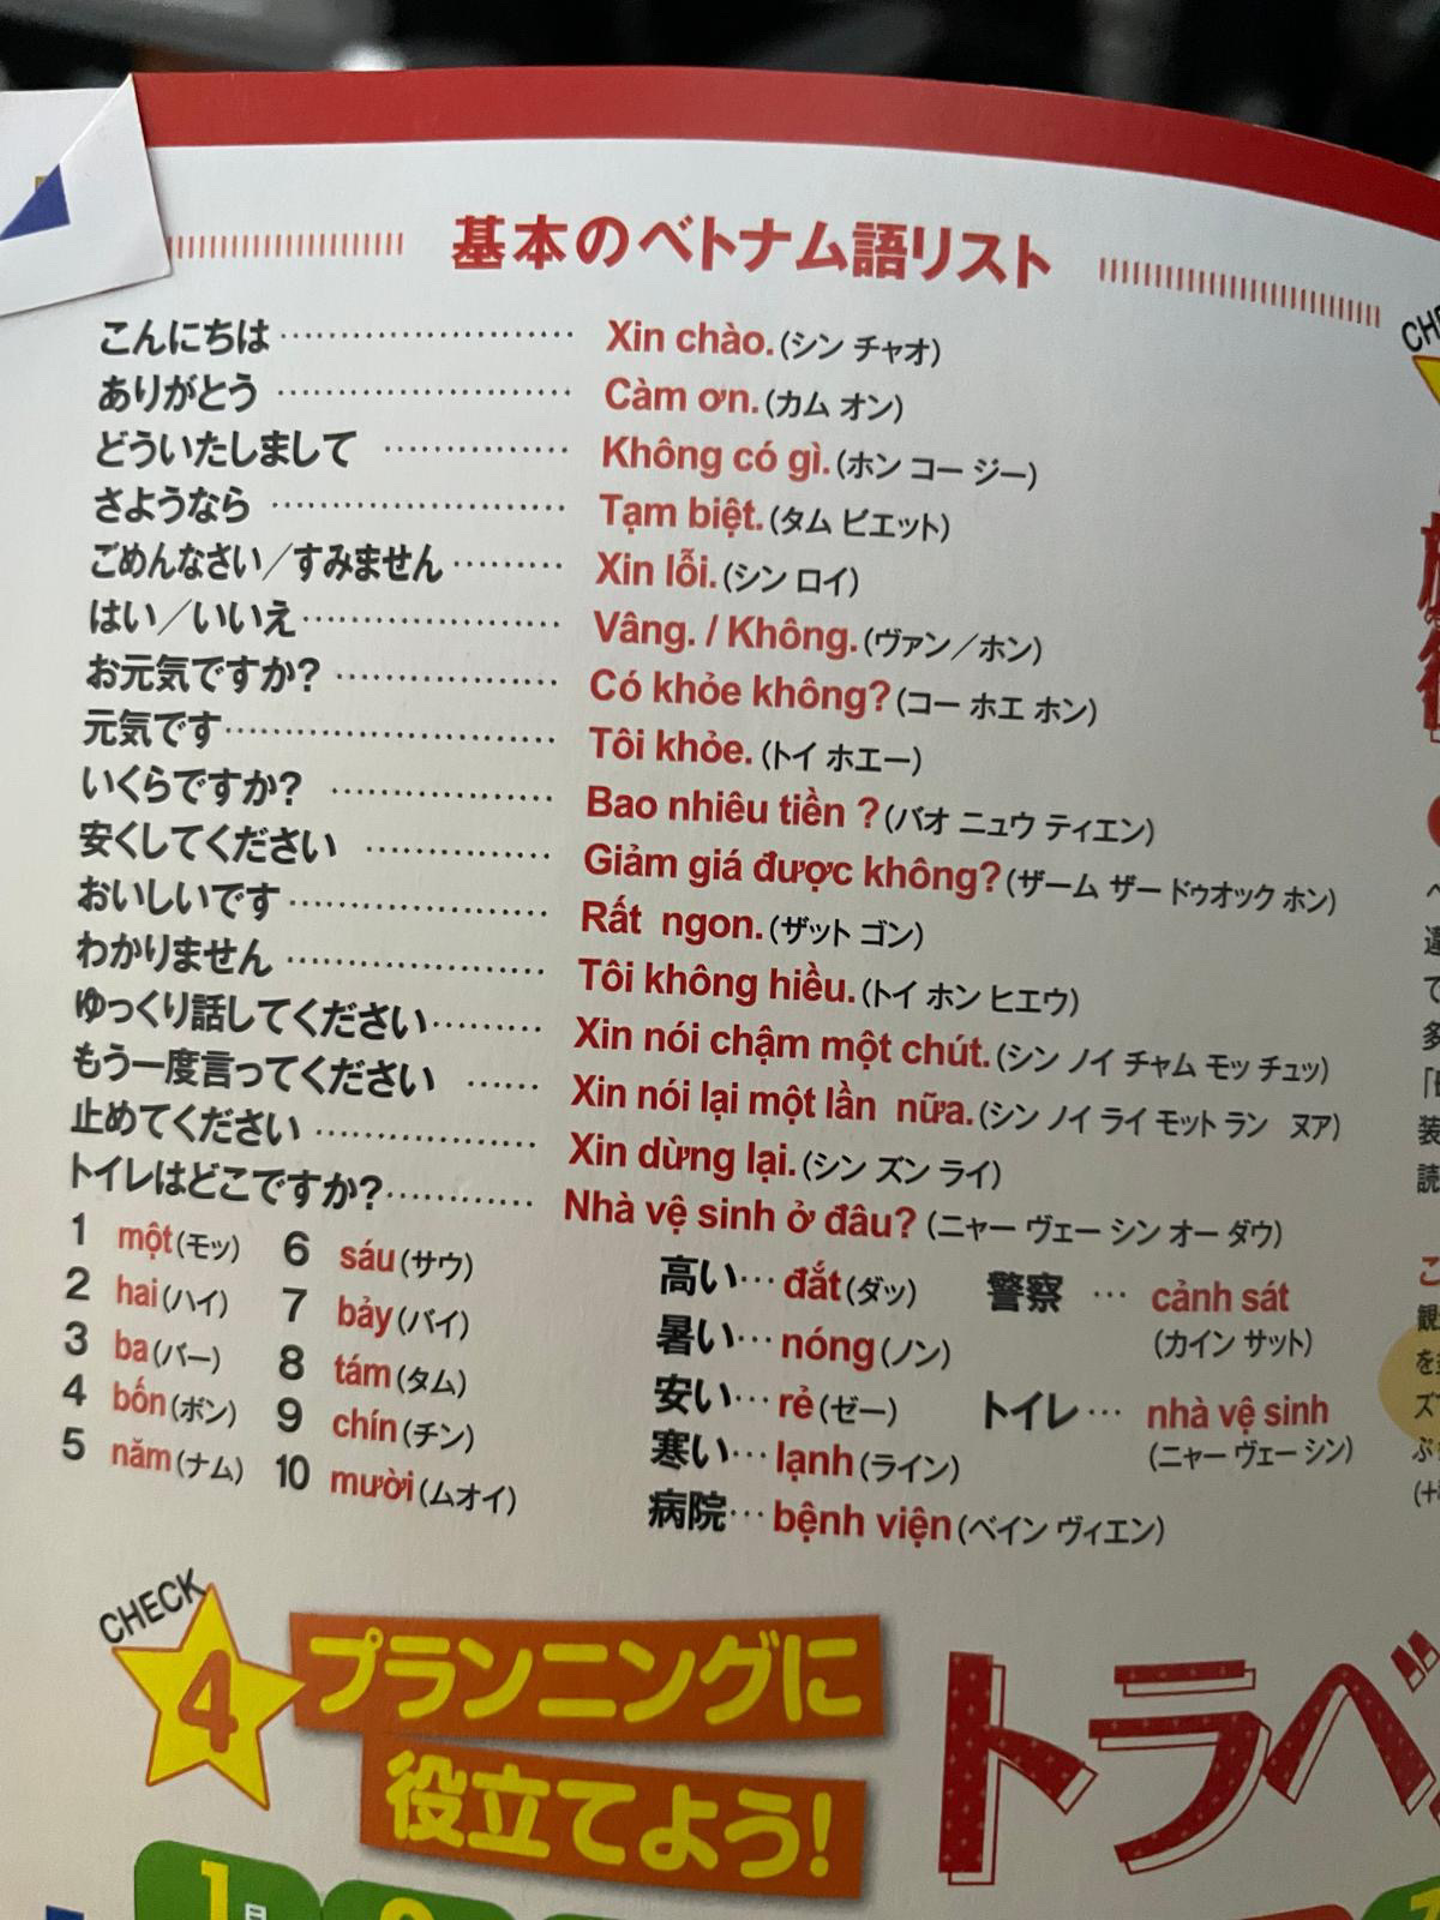 基本のベトナム語リスト
こんにちは………………………… Xin chào.(シン チャオ)
ありがとう ………………………… Càm ơn.(カム オン)
どういたしまして ……………… Không có gì.(ホン コー ジー)
さようなら ………………………… Tạm biệt.(タム ビエット)
ごめんなさい／すみません……… Xin lỗi.(シン ロイ)
はい／いいえ…………………… Vâng. / Không.(ヴァン／ホン)
お元気ですか? ………………… Có khỏe không?(コー ホエ ホン)
元気です…………………………… Tôi khỏe.(トイ ホエー)
いくらですか? ………………… Bao nhiêu tiền ?(バオ ニュウ ティエン)
安くしてください ……………… Giảm giá được không?(ザーム ザー ドゥオック ホン)
おいしいです…………………… Rất ngon.(ザット ゴン)
わかりません …………………… Tôi không hiểu.(トイ ホン ヒエウ)
ゆっくり話してください……… Xin nói chậm một chút.(シン ノイ チャム モッ チュッ)
もう一度言ってください …… Xin nói lại một lần nữa.(シン ノイ ライ モット ラン ヌア)
止めてください ………………… Xin dừng lại.(シン ズン ライ)
トイレはどこですか?………… Nhà vệ sinh ở đâu?(ニャー ヴェー シン オー ダウ)
1 một(モッ) 6 sáu(サウ)
2 hai(ハイ) 7 bảy(バイ)
3 ba(バー) 8 tám(タム)
4 bốn(ボン) 9 chín(チン)
5 năm(ナム) 10 mười(ムオイ)
高い… đắt(ダッ)
暑い… nóng(ノン)
安い… rẻ(ゼー)
寒い… lạnh(ライン)
病院… bệnh viện(ベイン ヴィエン)
警察 … cảnh sát
(カイン サット)
トイレ… nhà vệ sinh
(ニャー ヴェー シン)
CHECK
4
プランニングに
役立てよう!
トラベ
1